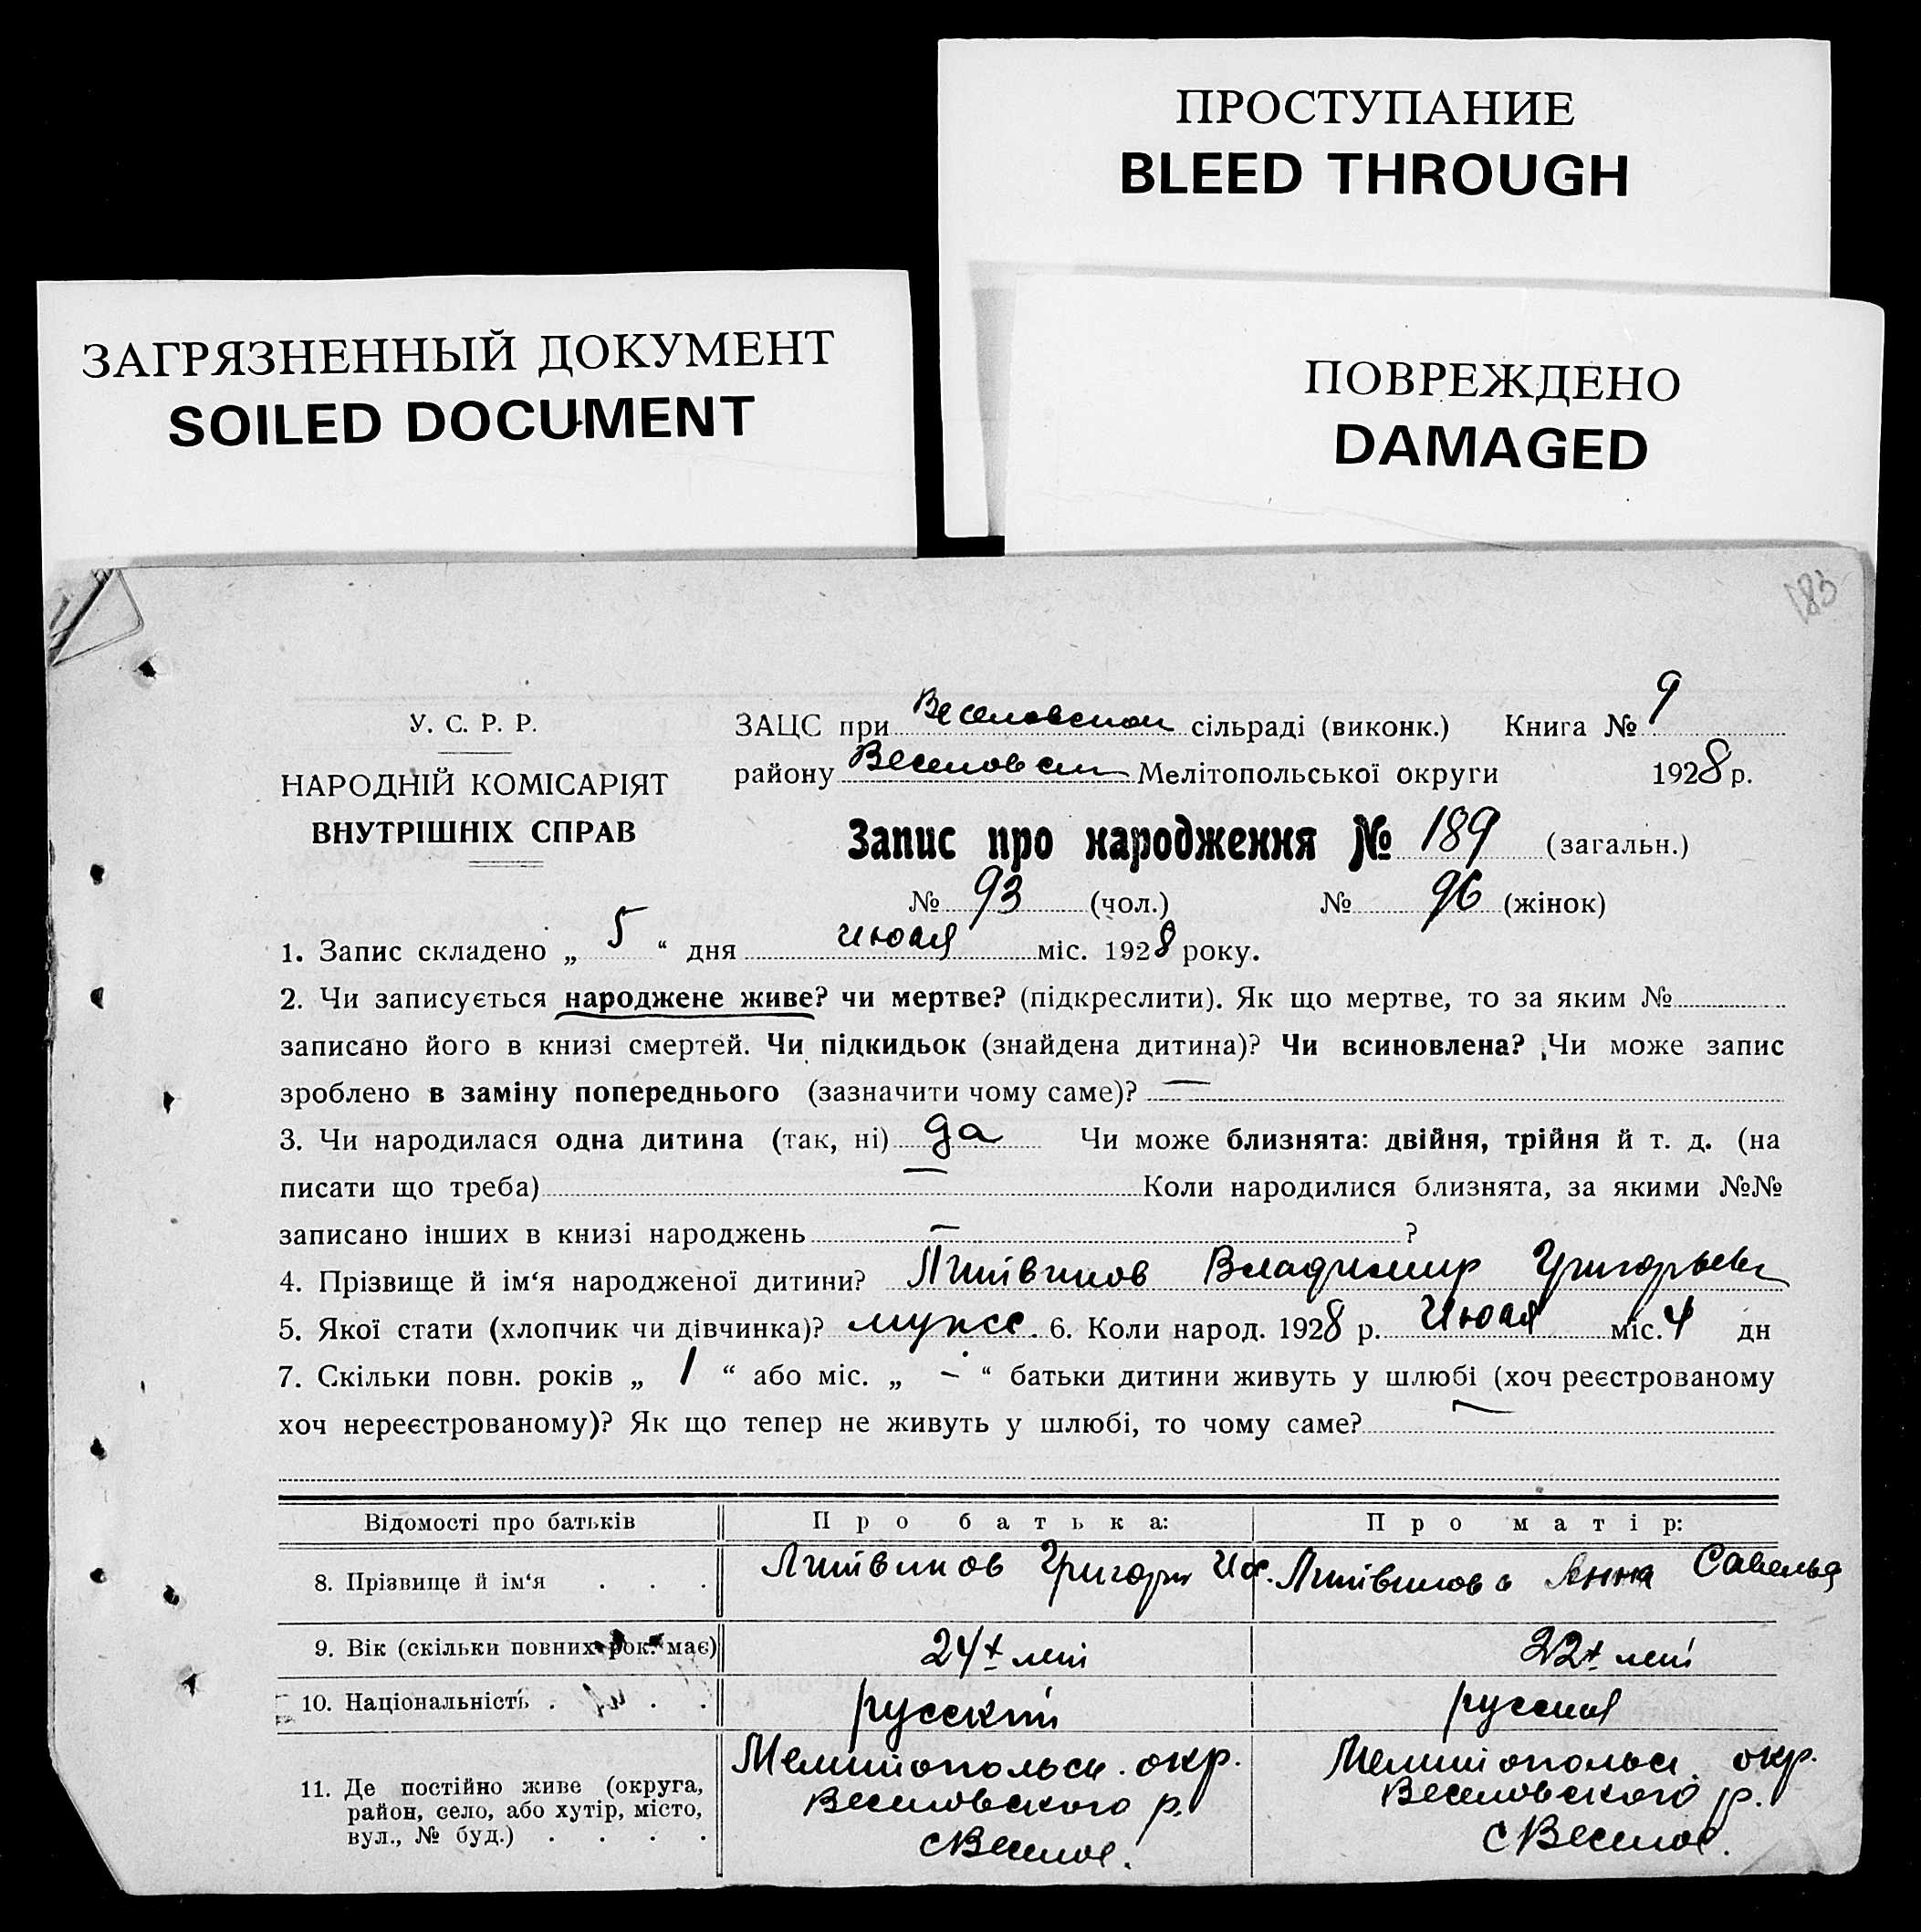 ПРОСТУПАНИЕ
BLEED THROUGH
ЗАГРЯЗНЕННЫЙ ДОКУМЕНТ
SOILED DOCUMENT
ПОВРЕЖДЕНО
DAMAGED
183
У. С. Р. Р.
НАРОДНІЙ КОМІСАРІЯТ
ВНУТРІШНІХ СПРАВ
ЗАЦС при Веселовской сільраді (виконк.) Книга № 9
району Веселовск Мелітопольської округи 1928 р.
Запис про народження № 189 (загальн.)
№ 93 (чол.) № 96 (жінок)
1. Запис складено „ 5 “ дня июля міс. 1928 року.
2. Чи записується народжене живе? чи мертве? (підкреслити). Як що мертве, то за яким №
записано його в книзі смертей. Чи підкидьок (знайдена дитина)? Чи всиновлена? Чи може запис
зроблено в заміну попереднього (зазначити чому саме)? —
3. Чи народилася одна дитина (так, ні) да Чи може близнята: двійня, трійня й т. д. (на
писати що треба) — Коли народилися близнята, за якими №№
записано інших в книзі народжень — ?
4. Прізвище й ім‘я народженої дитини? Литвинов Владимир Григорьев
5. Якої стати (хлопчик чи дівчинка)? мужс. 6. Коли народ. 1928 р. Июля міс. 4 дн
7. Скільки повн. років „ 1 “ або міс. „ — “ батьки дитини живуть у шлюбі (хоч реєстрованому
хоч нереєстрованому)? Як що тепер не живуть у шлюбі, то чому саме? —
Відомості про батьків Про батька: Про матір:
8. Прізвище й ім‘я . . . Литвинов Григори Литвинова Анна Савельв
9. Вік (скільки повних рок. має) 24 лет 22 лет
10. Національність . . . русский русская
11. Де постійно живе (округа,
район, село, або хутір, місто,
вул., № буд.) . . . .
Мелитопольск. окр.
Веселовского р.
с Веселое.
Мелитопольск. окр.
Веселовского р.
с Веселое.